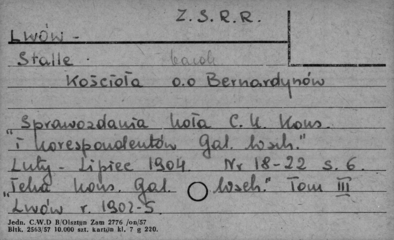 Z. S. R. R.
Lwów -
Stalle · barok
Kościoła o.o Bernardynów
"Sprawozdania koła C. K. Kons.
"i korespondentów Gal. Wsch."
Luty - Lipiec 1904. Nr 18-22 s. 6.
"Teka Kons. Gal. Wsch." Tom III
Lwów r. 1902-5.
Jedn. C.W.D B/Olsztyn Zam 2776 /on/57
Bltk. 2563/57 10.000 szt. karton kl. 7 g 220.